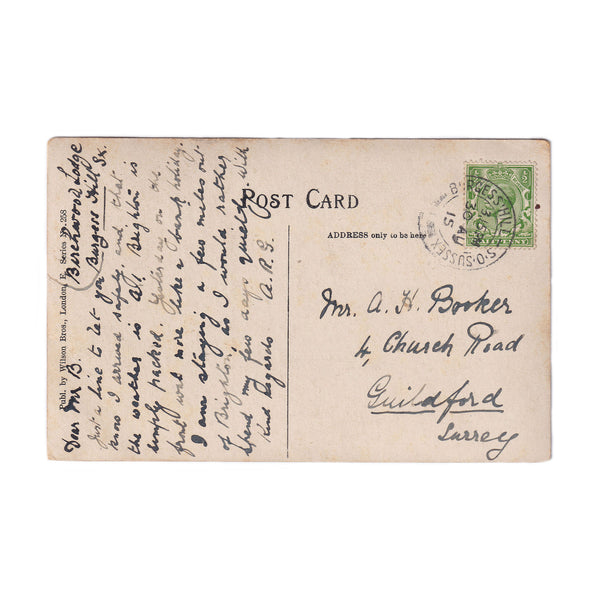 Publ. by Wilson Bros., London, E. Series No. 258
POST CARD
ADDRESS only to be here
BURGESS HILL S.O. SUSSEX
30 AU
15
Birchwood Lodge
Burgess Hill Sx.
Dear Mr B.
Just a line to let you
know I arrived safely and that
the weather is A1. Brighton is
simply packed. Yesterday on the
front was more like a Count holiday.
I am staying a few miles out
of Brighton as I would rather
spend my few days quietly. With
Kind Regards A.R.G.
Mr. A. H. Booker
4, Church Road
Guildford
Surrey